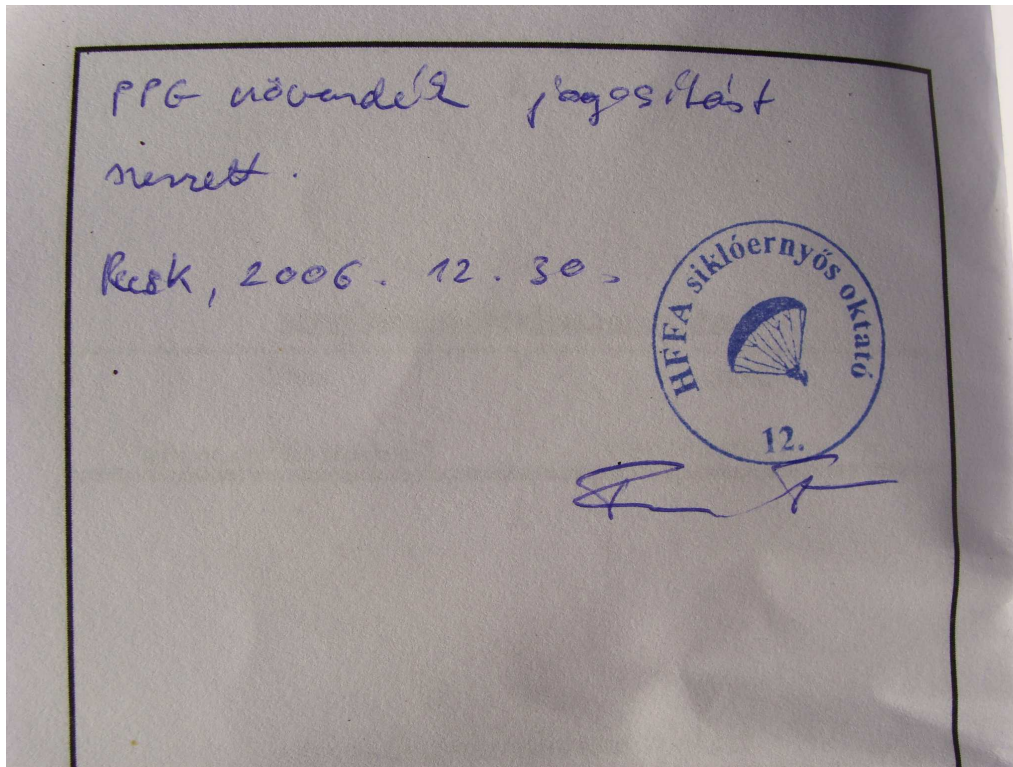 PPG növendék jogosítást
szerzett.
Recsk, 2006. 12. 30.
HFFA siklóernyős oktató
12.